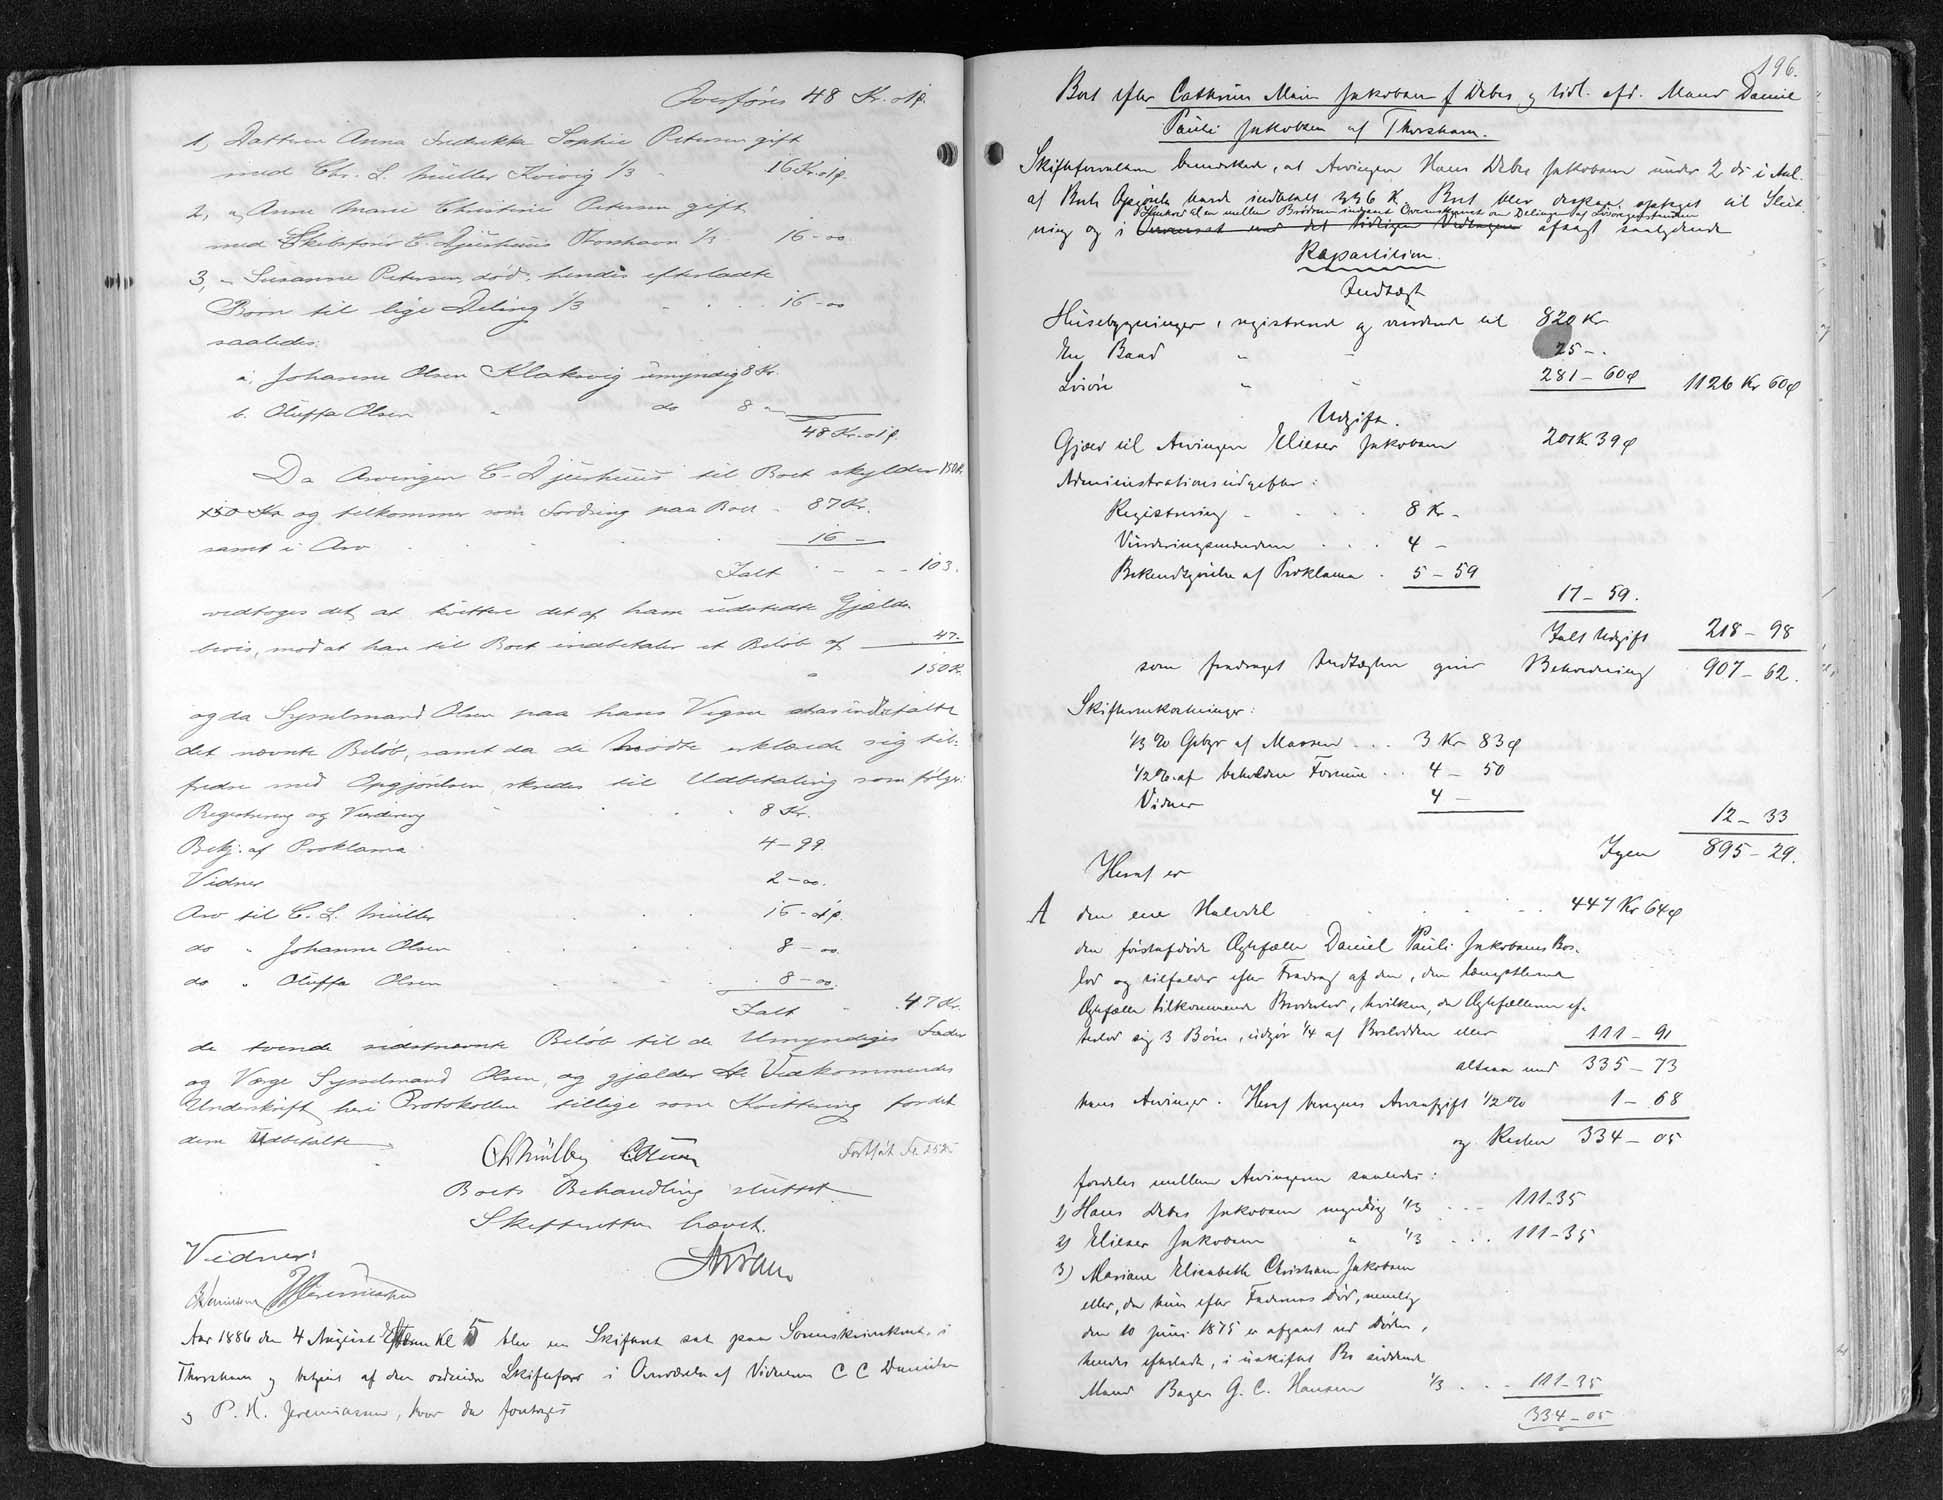 Overføres 48 Kr. ø
1, Datteren Anna Fredrikke Sophie Petersen gift
med Chr. L. Müller Kvivig 1/3 - 16 Kr. ø
2, " Anne Marie Christine Petersen gift
med Skibsfører C. Djurhuus Thorshavn 1/3 16 - 00
3, - Susanne Petersen, død, hendes efterladte
Børn til lige Deling 1/3 - 16 - 00
saaledes:
a, Johanne Olsen Klaksvig umyndig 8 Kr.
b. Oluffa Olsen " do 8 "
48 Kr. ø
Da Arvingen C. Djurhuus til Boet skylder 150 Kr.
150 Kr og tilkommer som Fordring paa Boet - 87 Kr.
samt i Arv 16 -
Ialt - - - 103.
vedtoges det, at kvittere det af ham udstedte Gjælds-
bevis, mod at han til Boet indbetaler et Beløb af 47.
" 150 Kr.
og da Sysselmand Olsen paa hans Vegne har indbetalt
det nævnte Beløb, samt da de Mødte erklærede sig til-
fredse med Opgjørelsen, skredes til Udbetaling som følger:
Registrering og Vurdering 8 Kr.
Bekj. af Proklama 4 - 99.
Vidner 2 - 00.
Arv til C. L. Müller 16 - ø
do " Johanne Olsen 8 - 00
do " Oluffa Olsen 8 - 00.
Ialt 47 Kr.
de tvende sidstnævnte Beløb til de Umyndiges Fader
og Værge Sysselmand Olsen, og gjælder de Vedkommendes
Underskrift her i Protokollen tillige som Kvittering for det
dem Udbetalte
Müller Olsen Fortsat
Boets Behandling sluttet
Skifteretten hævet.
Vidner:
Danielsen PHJeremiassen
Aar 1886 den 4 August Efterm Kl 5 blev en Skifteret sat paa Sorenskriverkont. i
Thorshavn og betjent af den ordinære Skifteforv i Overværelse af Vidnerne C C Danielsen
og P. H. Jeremiassen, hvor da foretoges
196.
Boet efter Cathrine Marie Jakobsen f Debes og tidl. afd. Mand Daniel
Pauli Jakobsen af Thorshavn.
Skifteforvalteren bemærkede, at Arvingen Hans Debes Jakobsen under 2 ds i Anl.
af Boets Opgjørelse havde indbetalt 336 K. Boet blev derpaa optaget til Slut-
Henhold til en mellem Brødrene indgaaet Overenskomst om Delingen af Løsøregjenstandene
ning og i Overensst med det tidligere Vedtagne afsagt saalydende
Repartition.
Indtægt
Husebygninger, registrerede og vurderede til 820 Kr
En Baad " - 25 - .
Løsøre " - 281 - 60 ø 1126 Kr 60 ø
Udgift.
Gjæld til Arvingen Elieser Jakobsen 201 K. 39 ø
Administrationsudgifter:
Registrering - 8 Kr -
Vurderingsmændene 4 -
Bekendtgjørelse af Proklama . 5 - 59
17 - 59.
Ialt Udgift 218 - 98
som fradraget Indtægten giver Beholdning 907 - 62.
Skifteomkostninger:
1/3 % Gebyr af Massen 3 Kr 83 ø
1/2 % af beholden Formue 4 - 50
Vidner 4 -
12 - 33
Igen 895 - 29.
Heraf er
A den ene Halvdel 447 Kr 64 ø
den førstafdøde Ægtefælle Daniel Pauli Jakobsens Bos-
lod og tilfalder efter Fradrag af den, den længstlevende
Ægtefælle tilkommende Broderlod, hvilken, da Ægtefællerne ef-
terlod sig 3 Børn, udgjør 1/4 af Boslodden eller 111 - 91
altsaa med 335 - 73
hans Arvinger. Heraf beregnes Arveafgift 1/2 % 1 - 68
og Resten 334 - 05
fordeles mellem Arvingerne saaledes:
1) Hans Debes Jakobsen myndig 1/3 - - 111 - 35
2) Elieser Jakobsen " 1/3 . . . 111 - 35
3) Mariane Elisabeth Christiane Jakobsen
eller, da hun efter Faderens Død, nemlig
den 10 Juni 1875 er afgaaet ved Døden,
hendes efterladte, i uskiftet Bo siddende
Mand Bager G. C. Hansen 1/3 . - - 111 - 35
334 - 05